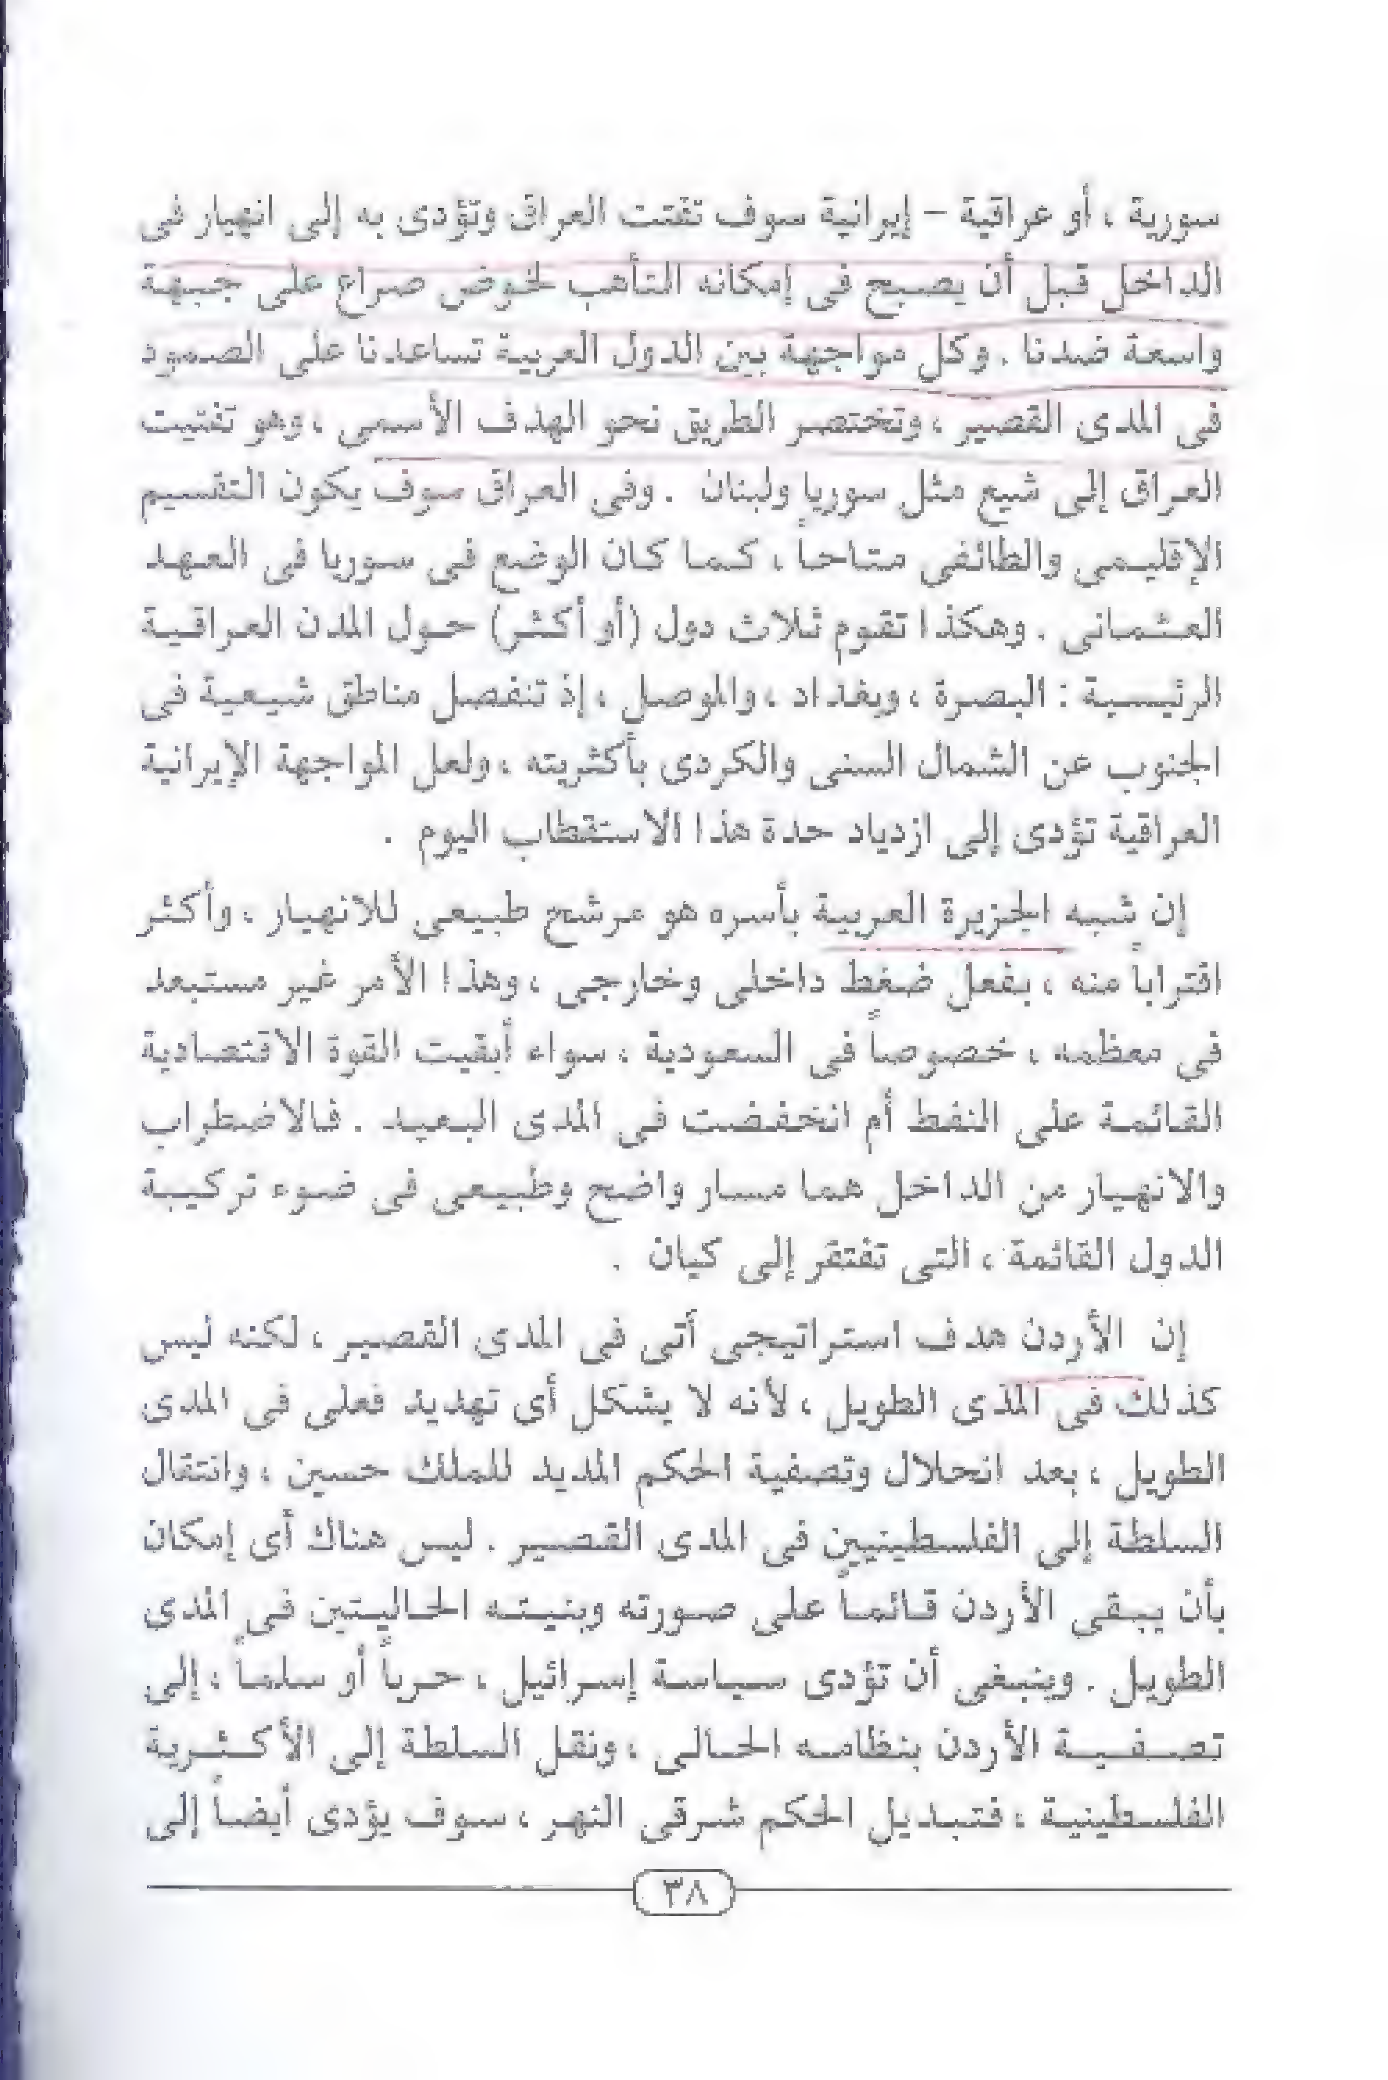 سورية ، أو عراقية – إيرانية سوف تفتت العراق وتؤدى به إلى انهيار فى
الداخل قبل أن يصبح فى إمكانه التأهب لخوض صراع على جبهة
واسعة ضدنا . وكل مواجهة بين الدول العربية تساعدنا على الصمود
فى المدى القصير ، وتختصر الطريق نحو الهدف الأسمى ، وهو تفتيت
العراق إلى شيع مثل سوريا ولبنان . وفى العراق سوف يكون التقسيم
الإقليمى والطائفى متاحاً ، كما كان الوضع فى سوريا فى العهد
العثمانى . وهكذا تقوم ثلاث دول (أو أكثر) حول المدن العراقية
الرئيسية : البصرة ، وبغداد ، والموصل ، إذ تنفصل مناطق شيعية فى
الجنوب عن الشمال السنى والكردى بأكثريته ، ولعل المواجهة الإيرانية
العراقية تؤدى إلى ازدياد حدة هذا الاستقطاب اليوم .
إن شبه الجزيرة العربية بأسره هو مرشح طبيعى للانهيار ، وأكثر
اقتراباً منه ، بفعل ضغط داخلى وخارجى ، وهذا الأمر غير مستبعد
فى معظمه ، خصوصاً فى السعودية ، سواء أبقيت القوة الاقتصادية
القائمة على النفط أم انخفضت فى المدى البعيد . فالاضطراب
والانهيار من الداخل هما مسار واضح وطبيعى فى ضوء تركيبة
الدول القائمة ، التى تفتقر إلى كيان .
إن الأردن هدف استراتيجى أتى فى المدى القصير ، لكنه ليس
كذلك فى المدى الطويل ، لأنه لا يشكل أى تهديد فعلى فى المدى
الطويل ، بعد انحلال وتصفية الحكم المديد للملك حسين ، وانتقال
السلطة إلى الفلسطينيين فى المدى القصير . ليس هناك أى إمكان
بأن يبقى الأردن قائماً على صورته وبنيته الحاليتين فى المدى
الطويل . وينبغى أن تؤدى سياسة إسرائيل ، حرباً أو سلماً ، إلى
تصفية الأردن بنظامه الحالى ، ونقل السلطة إلى الأكثرية
الفلسطينية ، فتبديل الحكم شرقى النهر ، سوف يؤدى أيضاً إلى
٣٨